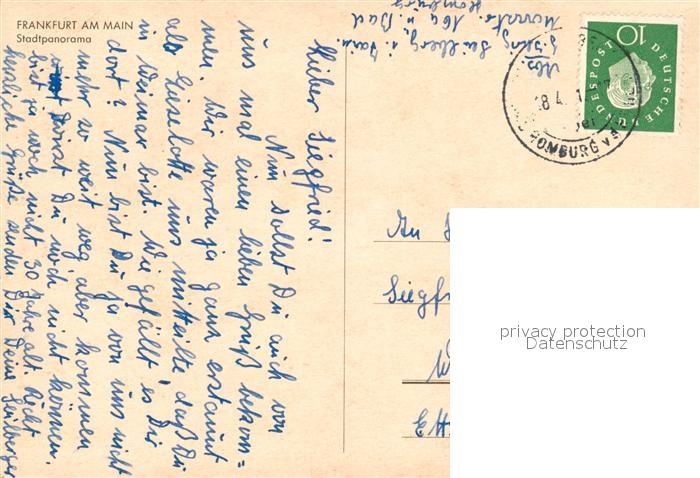 FRANKFURT AM MAIN
Stadtpanorama
Lieber Siegfried!
Nun sollst Du auch von
uns mal einen lieben Gruß bekom=
men. Wir waren ja ganz erstaunt
als Lieselotte uns mitteilte, daß Du
in Weimar bist. Wie gefällt es Dir
dort? Nun bist Du ja von uns nicht
mehr so weit weg, aber kommen
wirst Du noch nicht können.
bist ja noch nicht 30 Jahre alt. Recht
herzliche Grüße senden Dir Deine Seulberger
Abs.
Seulberg i. Taun.
16a ü. Bad
Homburg
10
DEUTSCHE BUNDESPOST
18.4.
HOMBURG v
An
Siegfr
W
Ett
privacy protection
Datenschutz